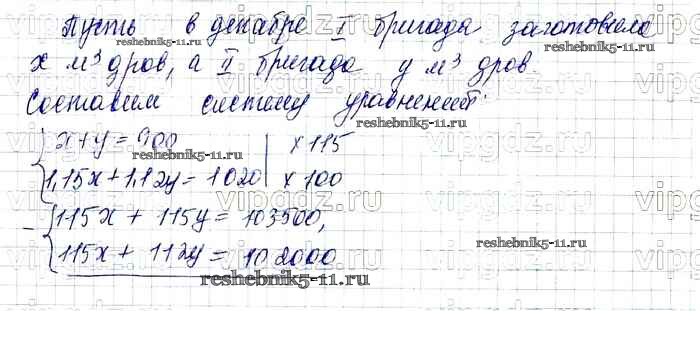 Пусть в декабре I бригада заготовила
reshebnik5-11.ru
x м³ дров, а II бригада y м³ дров.
reshebnik5-11.ru
Составим систему уравнений:
reshebnik5-11.ru
x + y = 900 | × 115
reshebnik5-11.ru
1,15x + 1,12y = 1020 | × 100
115x + 115y = 103500,
reshebnik5-11.ru
115x + 112y = 102000
reshebnik5-11.ru
vipgdz.ru
vipgdz.ru
vipgdz.ru